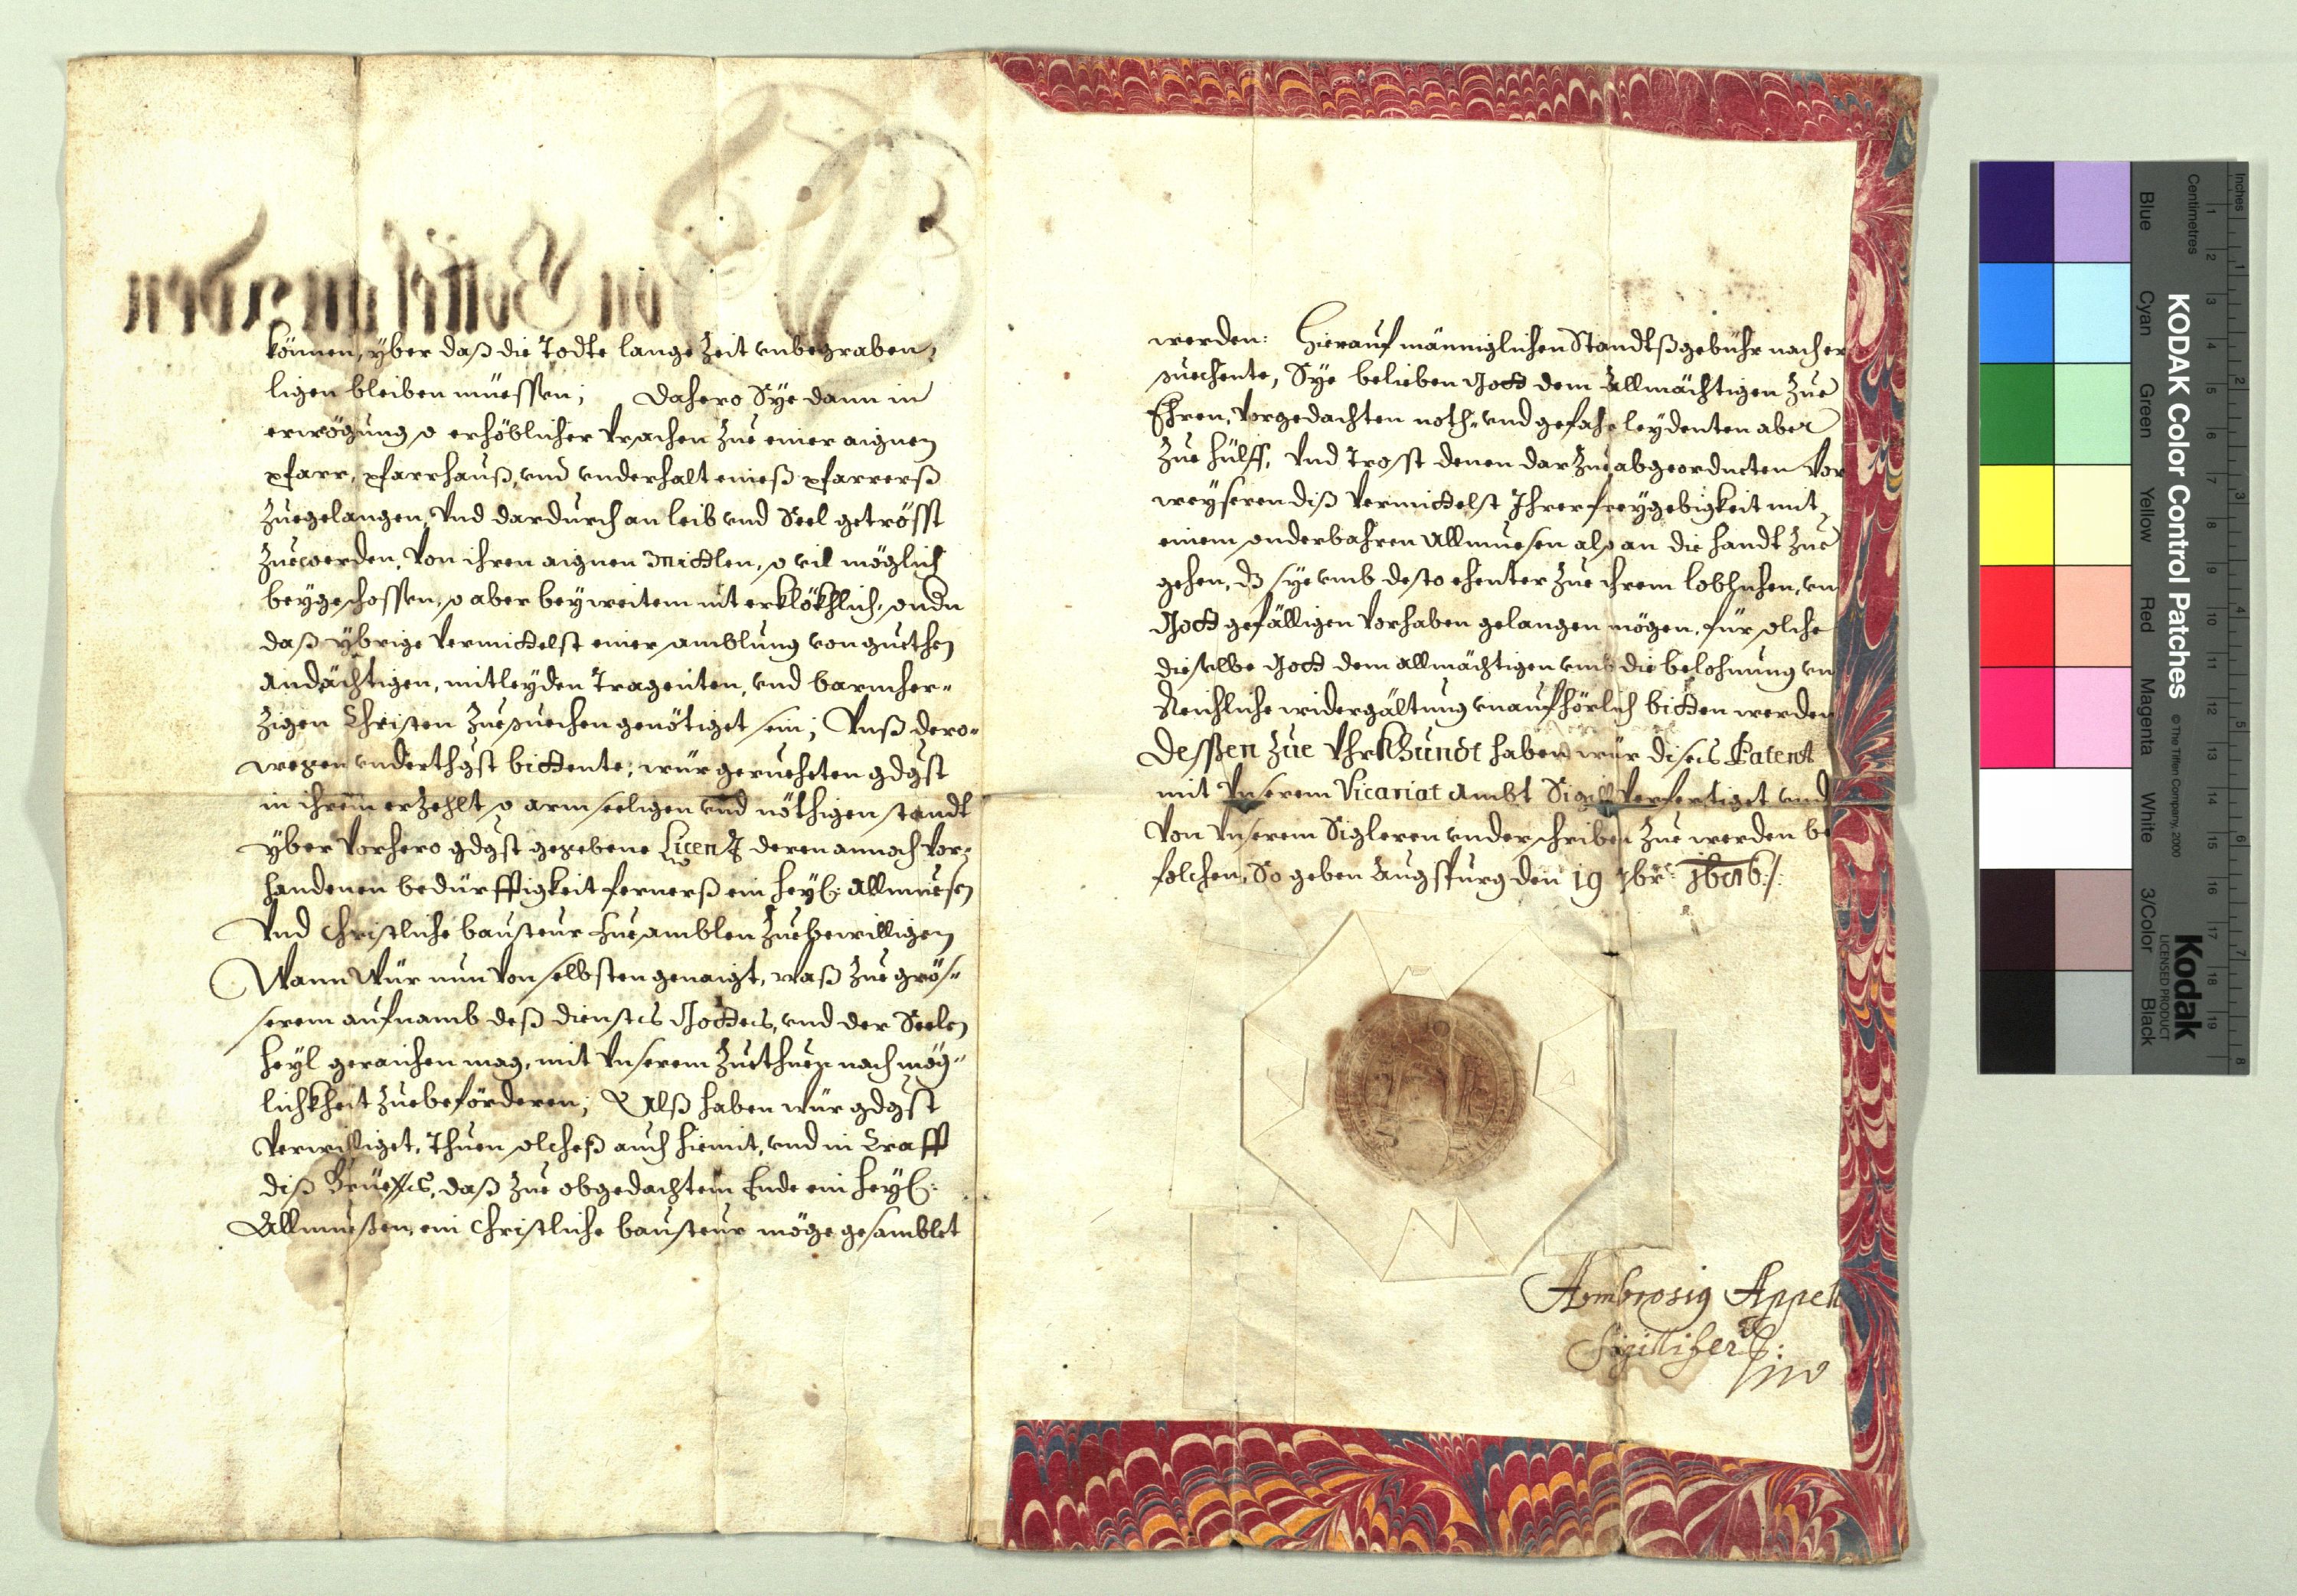 können, yber daß die Todte lange Zeit vnbegraben
ligen bleiben müessen; Dahero Sye dann in
erwögung so erhöblicher Vrsachen Zue einer aignen
pfarr, pfarrhauß, vnd vnderhalt eineß pfarrerß
Zuegelangen, Vnd dardurch an leib vnd Seel getrösst
Zuewerden, Von ihren aignen Mittlen, so vil möglich
beygeschossen, so aber bey weitem nit erklökhlich, sondern
daß ybrige Vermittelst einer samblung von guethen
Andächtigen, mitleyden Tragenten, vnd barmher-
Zigen Christen Zuesuechen genötiget sein; Vnß dero-
wegen vnderthgst bittente; wür geruechten gdgst
in ihrem erZehlt so armseeligen vnd nöthigen standt
yber Vorhero gdgst gegebene Licenz deren annoch Vor-
handenen bedürfftigkeit fernerß ein heyl: Allmuesen
Vnd Christliche bausteur Zuesamblen Zuebewilligen
Wann Wür nun Von selbsten genaigt, waß Zue grös-
serem aufnamb deß dienstes Gottes, vnd der Seelen
heyl geraichen mag, mit Vnserem Zuethuen nach mög-
lichkheit Zuebeförderen; Alß haben wür gdgst
Verwilliget, Thuen solcheß auch hiemit, vnd in Crafft
diß Brüeffs, daß Zue obgedachtem Ende ein heyl:
Allmueßen, ein Christliche bausteur möge gesamblet
werden: Hierauf männiglichen Standtßgebühr nach er
suechente, Sye belieben Gott dem Allmächtigen Zue
Ehren, Vorgedachten noth- vnd gefahr leydenten aber
Zue hülff, Vnd Trost denen darZue abgeordneten Vor
weyseren diß Vermittelst Ihrer freygebigkeit mit
einem sonderbahren Allmuesen also an die handt Zue
gehen, dß sye vmb desto ehenter Zue ihrem loblichen, vn
Gott gefälligen Vorhaben gelangen mögen, für solche
dieselbe Gott dem Allmächtigen vmb die belohnung vn
Reichliche widergältung vnaufhörlich bitten werden
Dessen Zue Vhrkhundt haben wür dises Patent
mit Vnserem Vicariat Ambt Sigill Verfertiget vnd
Von Vnserem Sigleren vnderschriben Zue werden be
folchen, So geben Augspurg den 19 7br:
Von Gottes gnaden
Ambrosius Appell
Sigillifer